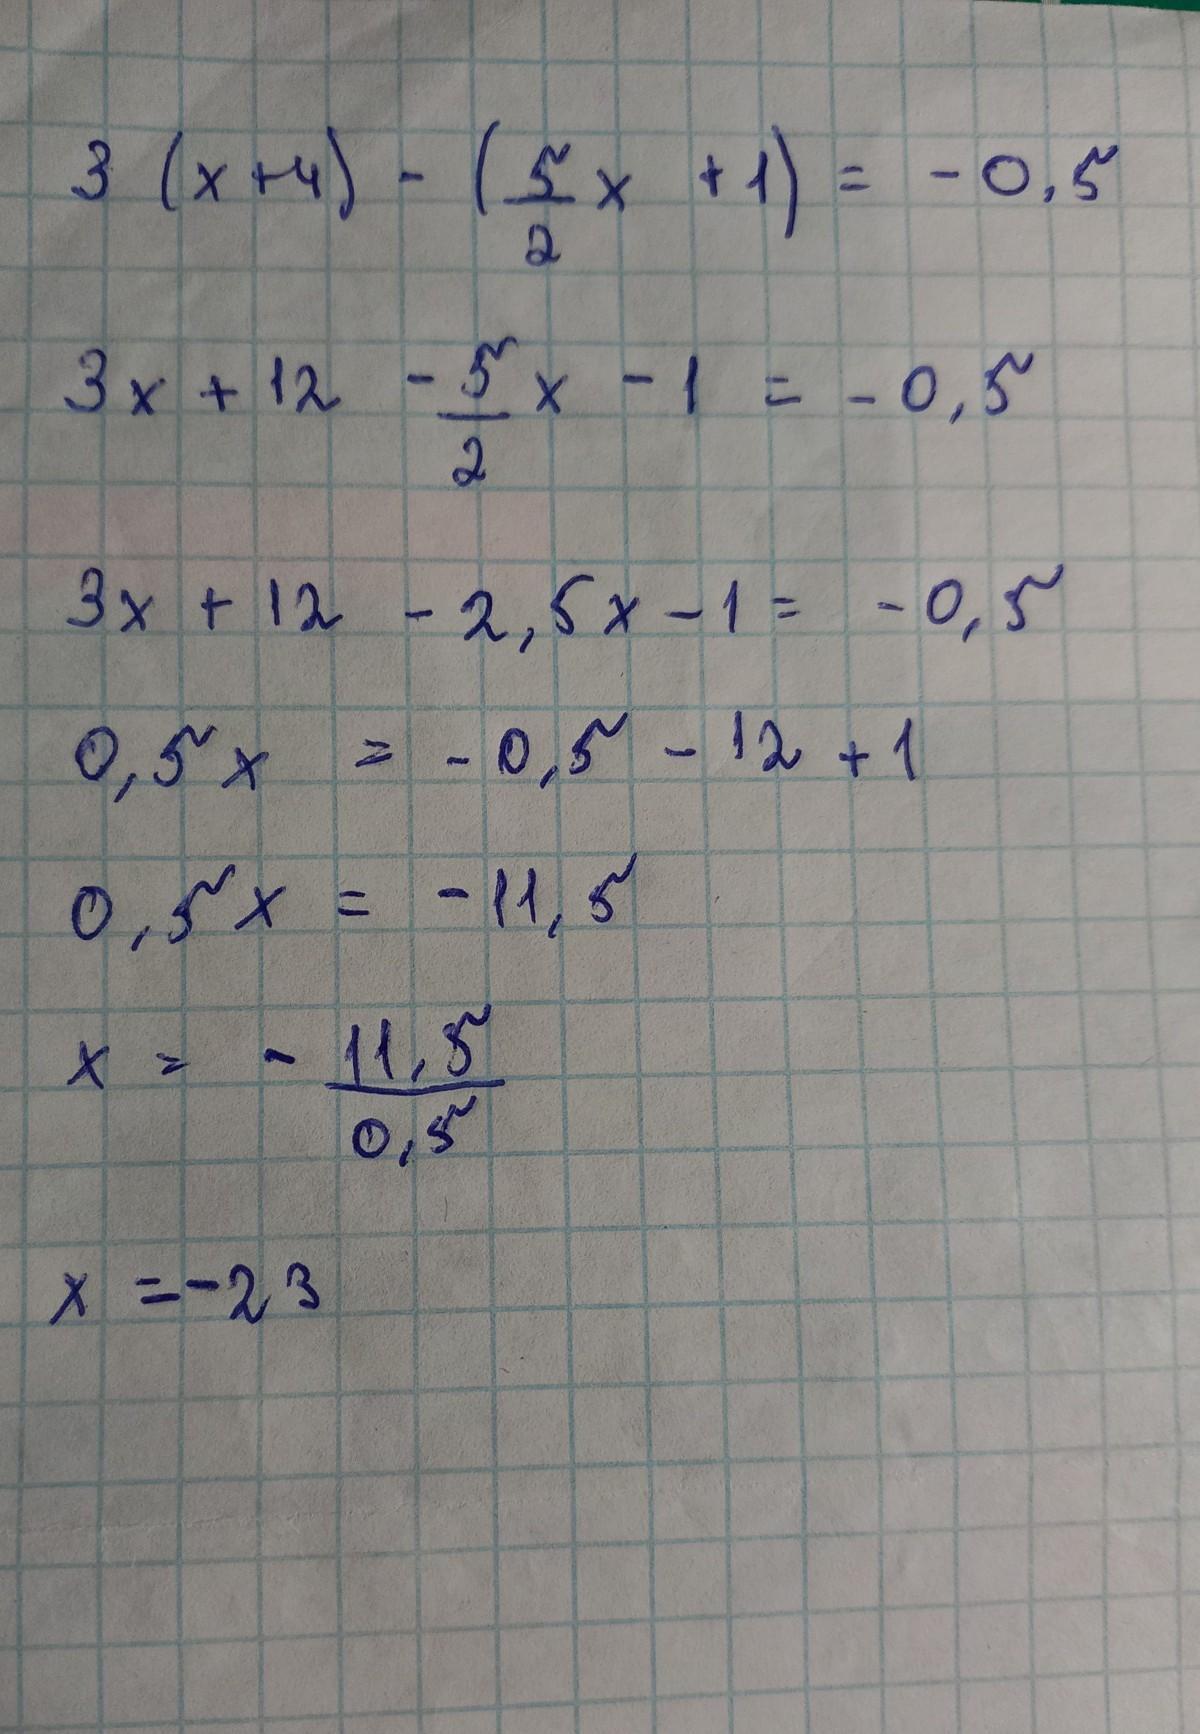 3 (x+4) - (5/2 x + 1) = - 0,5
3x + 12 - 5/2 x - 1 = - 0,5
3x + 12 - 2,5x - 1 = - 0,5
0,5x = - 0,5 - 12 + 1
0,5x = - 11,5
x = - 11,5/0,5
x = - 23